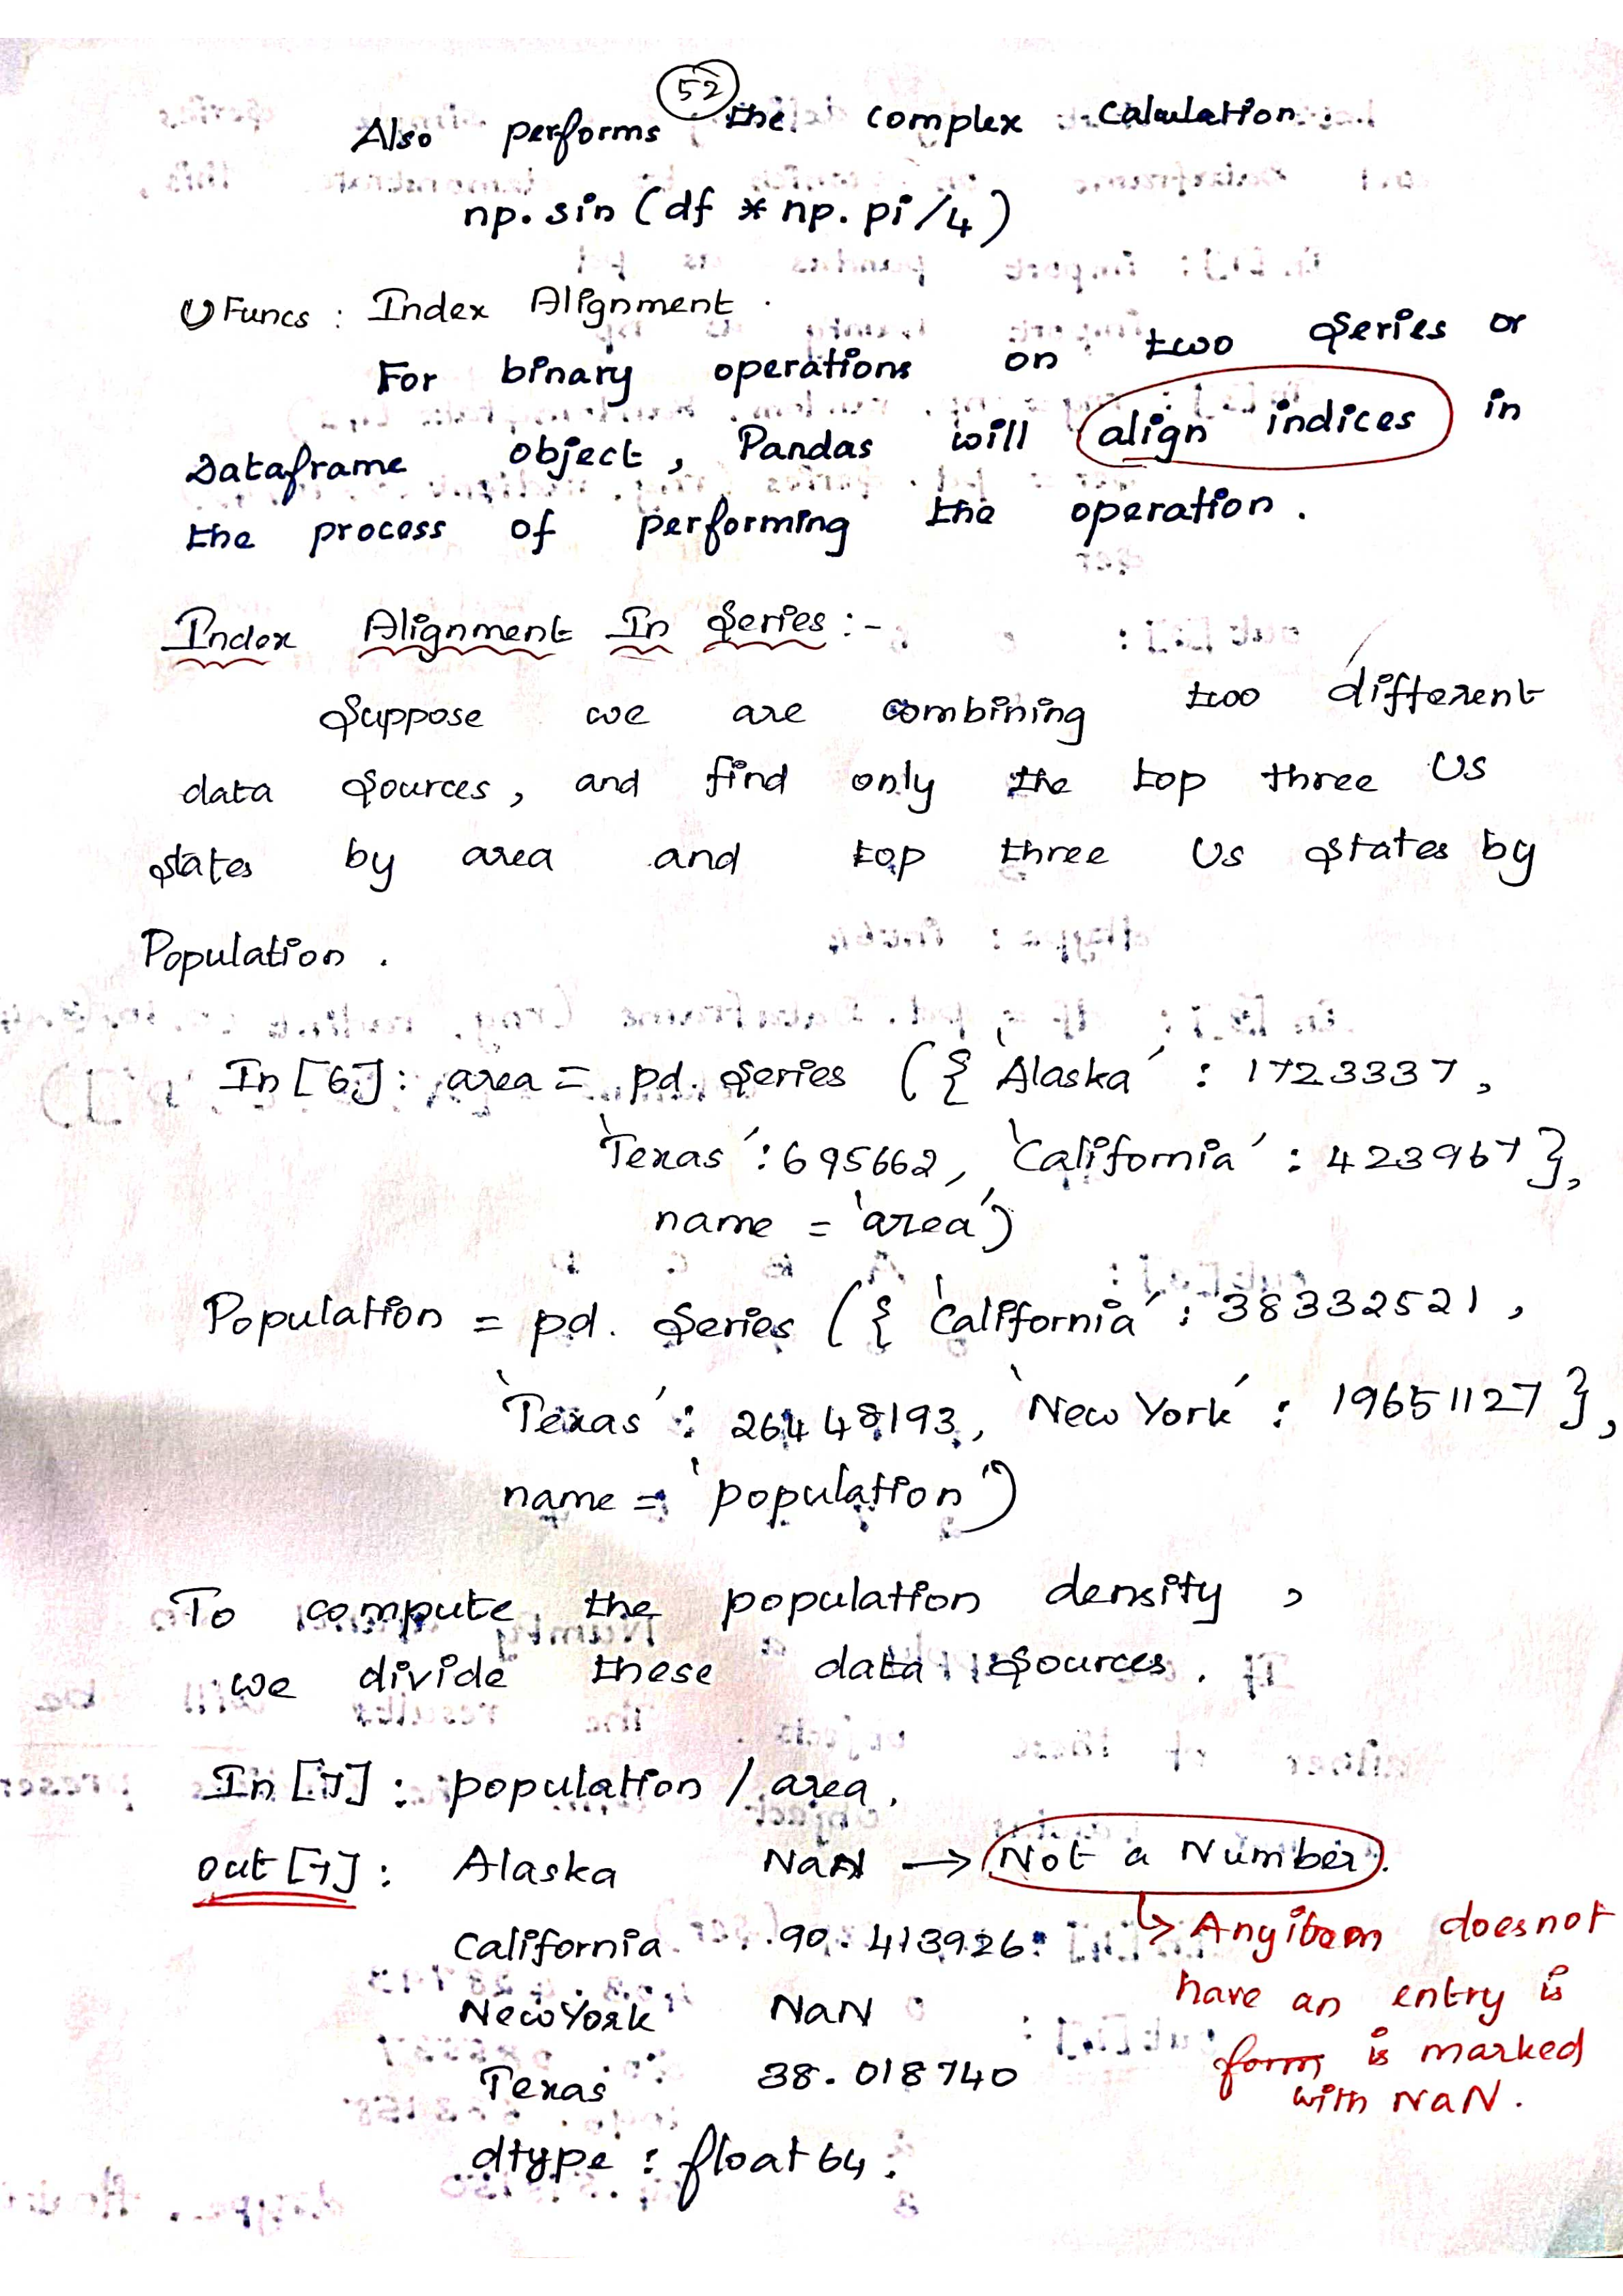 52
Also performs the complex Calculation.
np.sin (df * np.pi/4)
UFuncs : Index Alignment.
For binary operations on two Series or
Dataframe object, Pandas will align indices in
the process of performing the operation.
Index Alignment In Series :-
Suppose we are combining two different
data Sources, and find only the top three US
States by area and top three US States by
Population.
In [6]: area = pd. Series ({ Alaska' : 1723337,
'Texas' : 695662, 'California' : 423967 },
name = 'area')
Population = pd. Series ({ 'California' : 38332521,
'Texas' : 26448193, 'New York' : 19651127 },
name = 'population')
To compute the population density,
we divide these data Sources.
In [7]: population / area.
out [7]: Alaska NaN → Not a Number.
↳ Any item doesnot
California 90.413926
have an entry is
NewYork NaN
form is marked
Texas 38.018740
with NaN.
dtype : float 64.